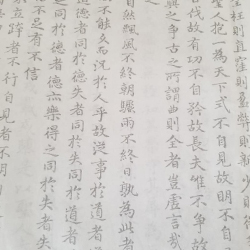 全枉則直窪則盈敝則新少則得
聖人抱一為天下式不自見故明不自
伐故有功不自矜故長夫唯不爭故
與之爭古之所謂曲則全者豈虛言哉
自然飄風不終朝驟雨不終日孰為此者
能久而況於人乎故從事於道者
道德者同於德失者同於失同於道者
之同於德者德亦樂得之同於失者失
不足有不信
立跨者不行自見者不明